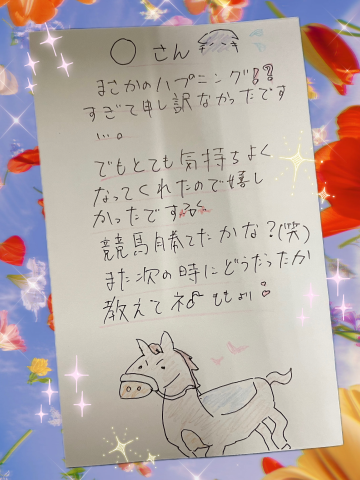 ○さん
まさかのハプニング!??
すぎて申し訳なかったです
…。
でもとても気持ちよく
なってくれたので嬉し
かったです
競馬勝てたかな?(笑)
また次の時にどうだったか
教えてネ ももより